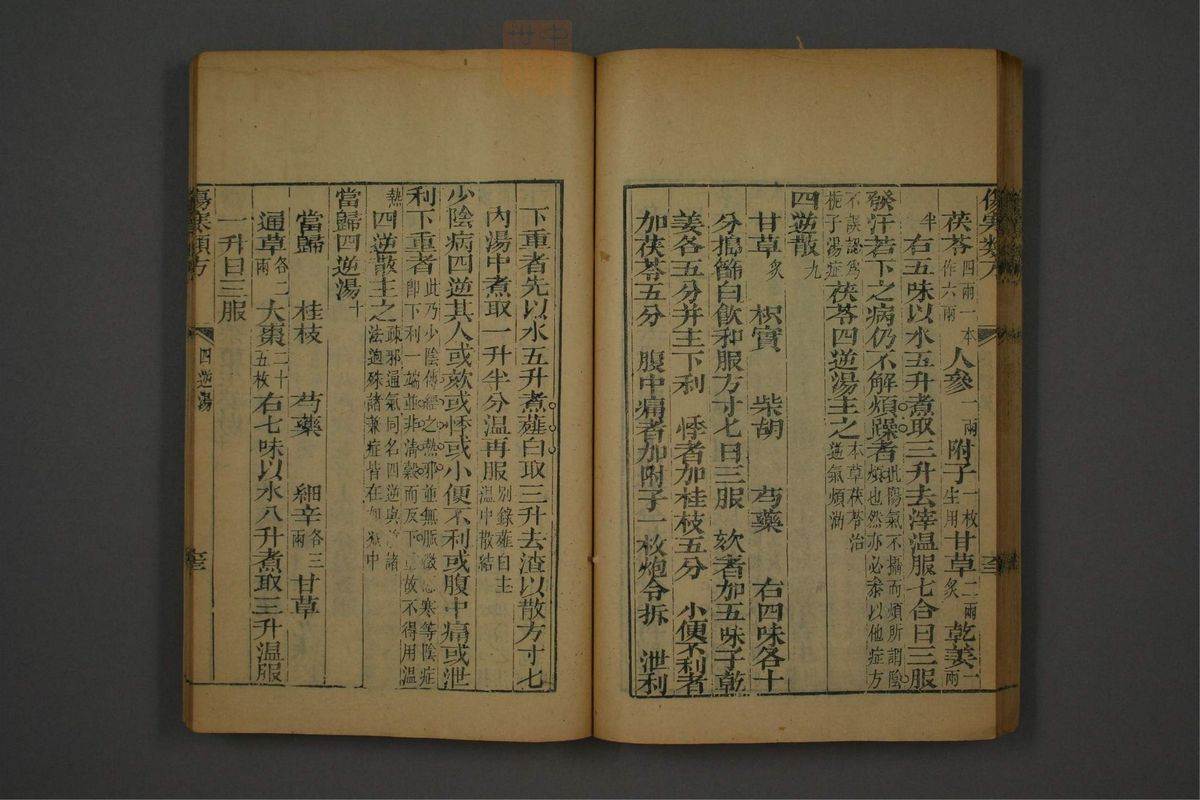 傷寒類方
茯苓四兩一本作六兩 人參一兩 附子一枚生用 甘草二兩炙 乾姜一兩
半 右五味以水五升煮取三升去滓溫服七合日三服
發汗若下之病仍不解煩躁者此陽氣不攝而煩所謂陰煩也然亦必參以他症方
不誤認爲梔子湯症 茯苓四逆湯主之本草茯苓治逆氣煩滿
四逆散九
甘草炙 枳實 柴胡 芍藥 右四味各十
分搗篩白飲和服方寸匕日三服 欬者加五味子乾
姜各五分并主下利 悸者加桂枝五分 小便不利者
加茯苓五分 腹中痛者加附子一枚炮令拆 泄利
下重者先以水五升煮薤白取三升去渣以散方寸匕
內湯中煮取一升半分溫再服別錄薤白主溫中散結
少陰病四逆其人或欬或悸或小便不利或腹中痛或泄
利下重者此乃少陰傳經之熱邪並無脈微惡寒等陰症卽下利一端並非清穀而反下重故不得用溫
熱 四逆散主之疎邪通氣同名四逆與諸法迥殊諸兼症皆在加減中
當歸四逆湯十
當歸 桂枝 芍藥 細辛各三兩 甘草
通草各二兩 大棗二十五枚 右七味以水八升煮取三升溫服
一升日三服
傷寒類方 四逆湯